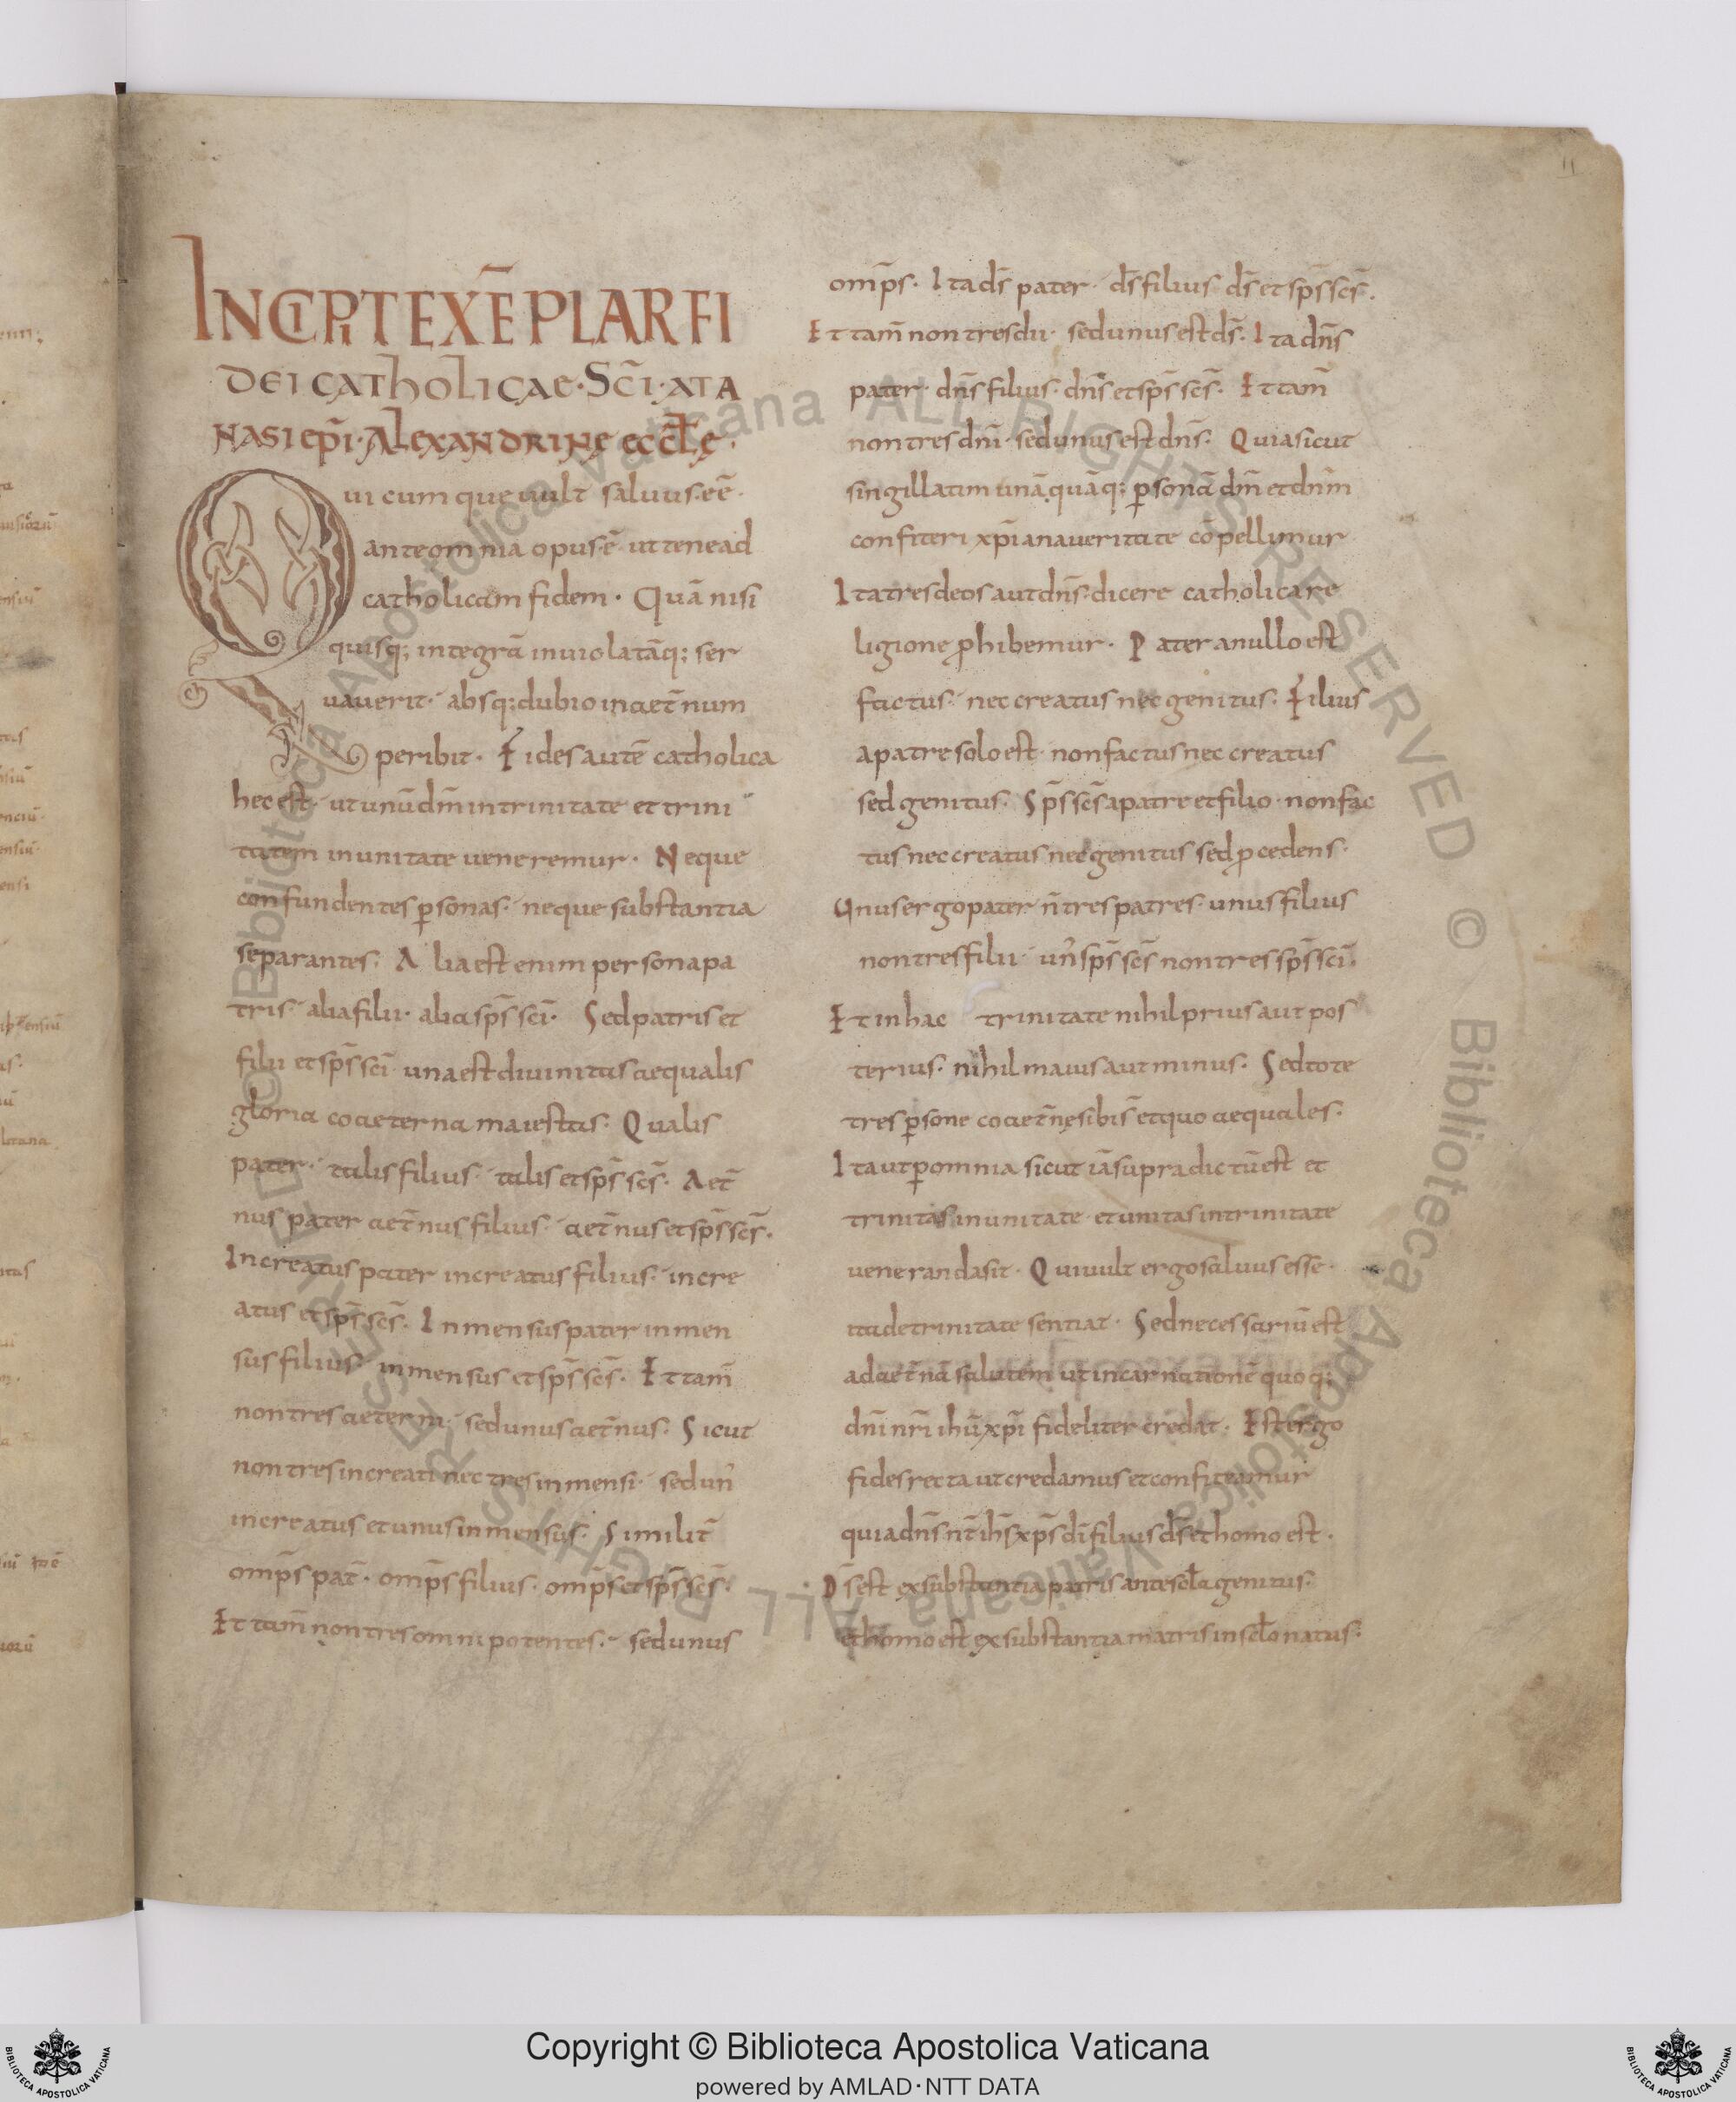 11
INCIPIT EXĒPLAR FI
DEI CATHOLICAE · SC̄I · ATA
NASI EP̄I · ALEXANDRINE ECCL̄E ·
Qui cumque uult saluus eē ·
ante omnia opus ē ut tenead
catholicam fidem · Quā nisi
quisq; integrā inuiolatāq; ser
uauerit · absq; dubio in aet̄num
peribit · Fides autē catholica
hec est · ut unū dm̄ in trinitate et trini
tatem in unitate ueneremur · Neque
confundentes p̱sonas · neque substantia
separantes · Alia est enim persona pa
tris · alia filii · alia sp̄s sc̄i · Sed patris et
filii et sp̄s sc̄i una est diuinitas aequalis
gloria coaeterna maiestas · Qualis
pater · talis filius · talis et sp̄s sc̄s · Aet̄
nus pater aet̄nus filius · aet̄nus et sp̄s sc̄s ·
Increatus pater increatus filius · incre
atus et sp̄s sc̄s · Inmensus pater inmen
sus filius inmensus et sp̄s sc̄s · Et tam̄
non tres aeterni · sed unus aet̄nus · Sicut
non tres increati nec tres inmensi · sed un᾽
increatus et unus inmensus · Similit̄
omp̄s pat̄ · omp̄s filius · omp̄s et sp̄s sc̄s ·
Et tam̄ non tres omnipotentes · sed unus
omp̄s · Ita ds̄ pater · ds̄ filius ds̄ et sp̄s sc̄s ·
Et tam̄ non tres dii · sed unus est ds̄ · Ita dn̄s
pater · dn̄s filius · dn̄s et sp̄s sc̄s · Et tam̄
non tres dn̄i · sed unus est dn̄s · Quia sicut
singillatim unāquāq; p̱sonā dm̄ et dnm̄
confiteri xp̄iana ueritate cōpellimur
Ita tres deos aut dn̄s dicere catholica re
ligione ꝓhibemur · Pater a nullo est
factus · nec creatus nec genitus · Filius
a patre solo est · non factus nec creatus
sed genitus · Sp̄s sc̄s a patre et filio · non fac
tus nec creatus nec genitus sed ꝓcedens ·
Unus ergo pater n̄ tres patres · unus filius
non tres filii · un᾽ sp̄s sc̄s non tres sp̄s sc̄i ·
Et in hac trinitate nihil prius aut pos
terius · nihil maius aut minus · Sed tote
tres p̱sone coaet̄nę sibi s̄ et quo aequales ·
Ita ut p̱ omnia sicut iā supra dictū est et
trinitas in unitate · et unitas in trinitate
ueneranda sit · Qui uult ergo saluus esse ·
ita de trinitate sentiat · Sed necessariū est
ad aet̄nā salutem ut incarnationē quoq;
dn̄i nr̄i ihū xp̄i fideliter credat · Est ergo
fides recta ut credamus et confiteamur
quia dn̄s nt̄ ihs̄ xp̄s dī filius ds̄ et homo est ·
Ds̄ est ex substantia patris ante scl̄a genitus ·
et homo est ex substantia matris in scl̄o natus ·
© Biblioteca Apostolica Vaticana ALL RIGHTS RESERVED © Biblioteca Apostolica Vaticana ALL RIGHTS RESERVED
Copyright © Biblioteca Apostolica Vaticana
powered by AMLAD·NTT DATA
BIBLIOTECA APOSTOLICA VATICANA
BIBLIOTECA APOSTOLICA VATICANA